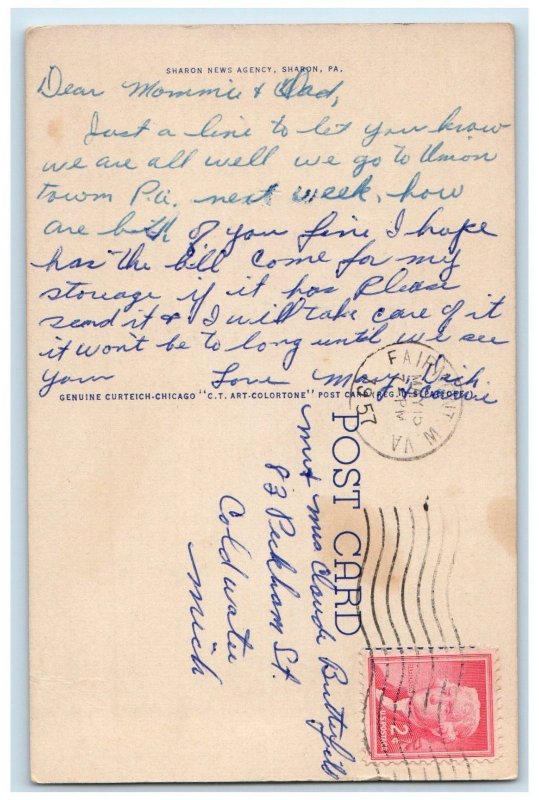 SHARON NEWS AGENCY, SHARON, PA.
Dear Mommie & Dad,
Just a line to let you know
we are all well we go to Union
town Pa. next week, how
are both of you fine I hope
has the bill come for my
storage if it has Please
send it & I will take care of it
it won't be to long until we see
you Love Mary, Dick
GENUINE CURTEICH-CHICAGO "C.T. ART-COLORTONE" POST CARD (REG. U.S. PAT. OFF.)
FAIRMONT W VA
MAY 15
PM
1957
POST CARD
Mr & Mrs Claude Butterfield
83 Peckham St.
Coldwater
Mich
2¢
U.S. POSTAGE